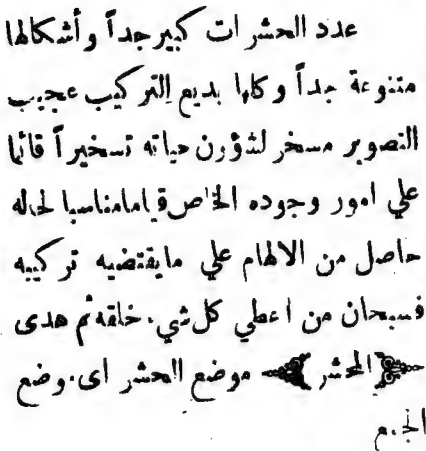 عدد الحشرات كبير جداً وأشكالها
متنوعة جداً وكلها بديع التركيب عجيب
التصوير مسخر لشؤون حياته تسخيراً قائما
علي امور وجوده الخاص قيامامناسبا لحاله
حاصل من الالهام علي مايقتضيه تركيبه
فسبحان من اعطي كل شيء خلقه ثم هدى
﴿المحشر﴾ موضع الحشر اى موضع
الجمع